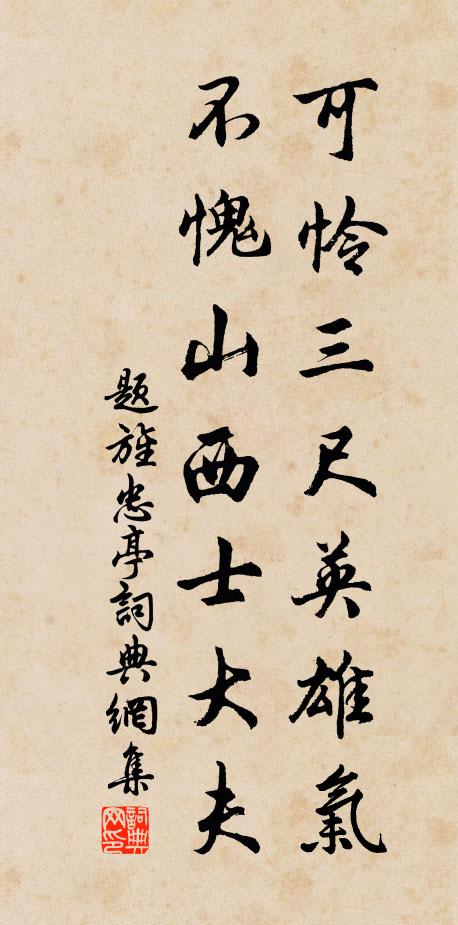 可怜三尺英雄氣
不愧山西士大夫
題旌忠亭詞典網集
詞典网印